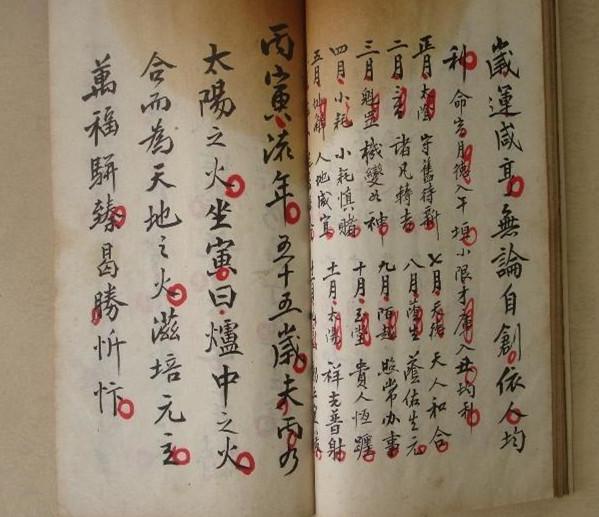 歲運咸亨無論自創依人均
利命宮月德入午垣小限才庫入丑均利
正月太陰守舊待新 七月天德天人和合
二月 諸凡轉吉 八月 蔭佑生元
三月魁罡機變如神 九月陌越照常办事
四月小耗小耗慎賭 十月玉堂貴人恆躔
五月 解人地咸宜 十一月太陽祥光普射
丙寅流年五十五歲夫丙乃
太陽之火坐寅曰爐中之火
合而為天地之火滋培元主
萬福駢臻曷勝忻忭